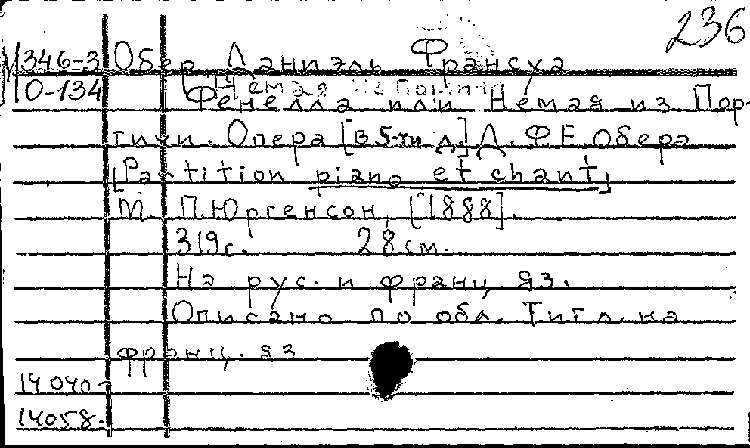 236
М346-3 Обер Даниэль Франсуа
О-134 Фенелла или Немая из Пор-
тичи. Опера [в 5-ти д.] Д.Ф.Е. Обера
[Partition piano et chant]
М. П. Юргенсон, [1888].
319с. 28см.
На рус. и франц яз.
Описано по обл. Титл. на
франц. яз
14040-
14058.